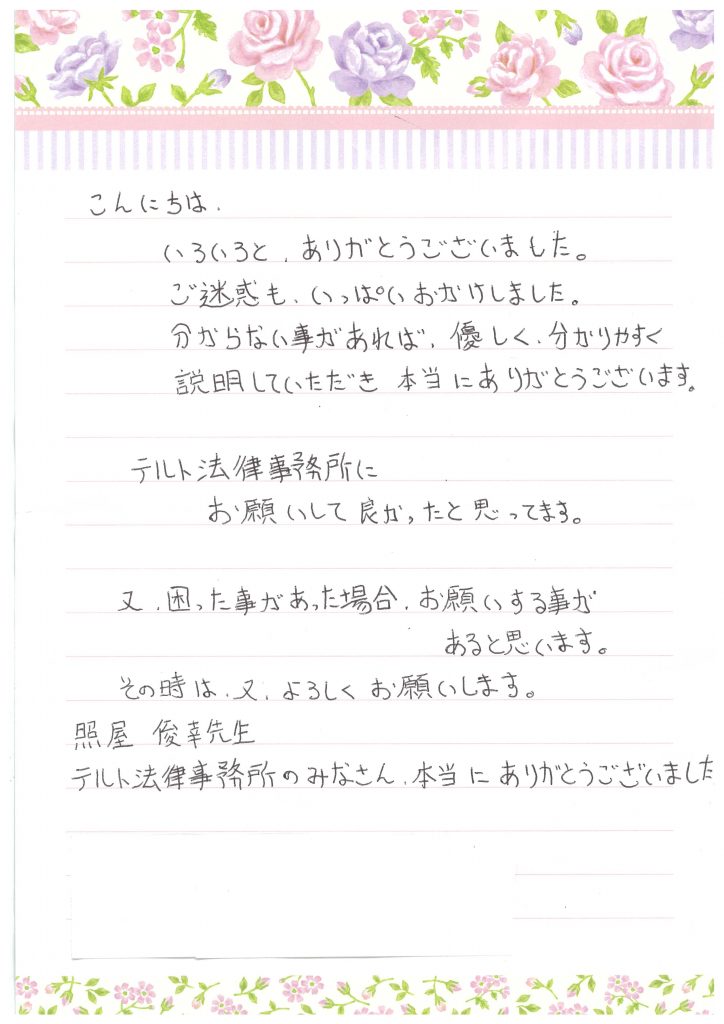 こんにちは、
いろいろと、ありがとうございました。
ご迷惑も、いっぱいおかけしました。
分からない事があれば、優しく、分かりやすく
説明していただき 本当にありがとうございます。
テルト法律事務所に
お願いして良かったと思ってます。
又、困った事があった場合、お願いする事が
あると思います。
その時は、又、よろしくお願いします。
照屋 俊幸先生
テルト法律事務所のみなさん、本当にありがとうございました